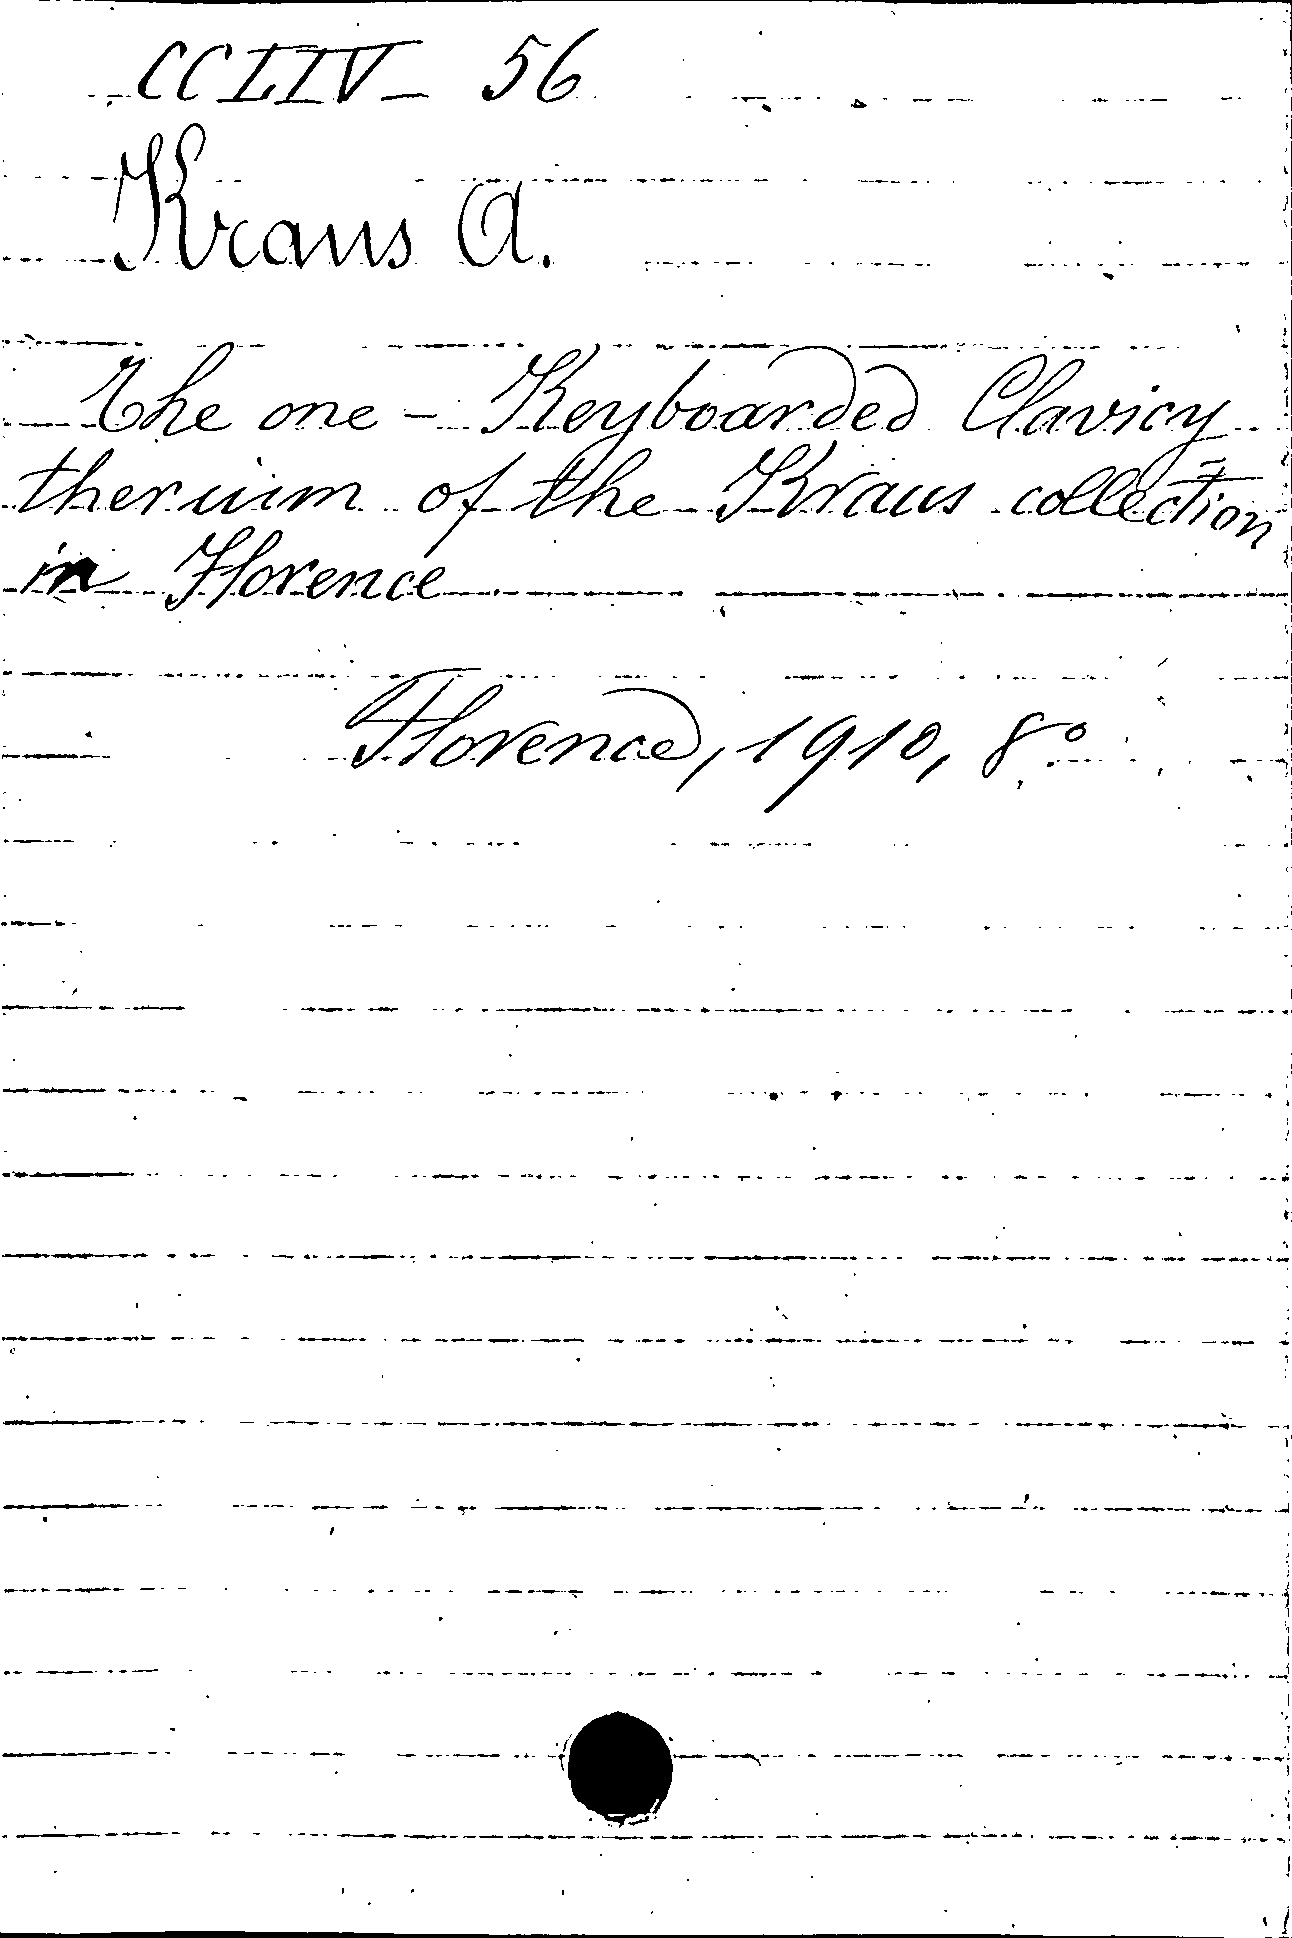 CCLIV - 56
Kraus A.
The one - Keyboarded Clavicy
therium of the Kraus collection
in Florence
Florence, 1910, 8°